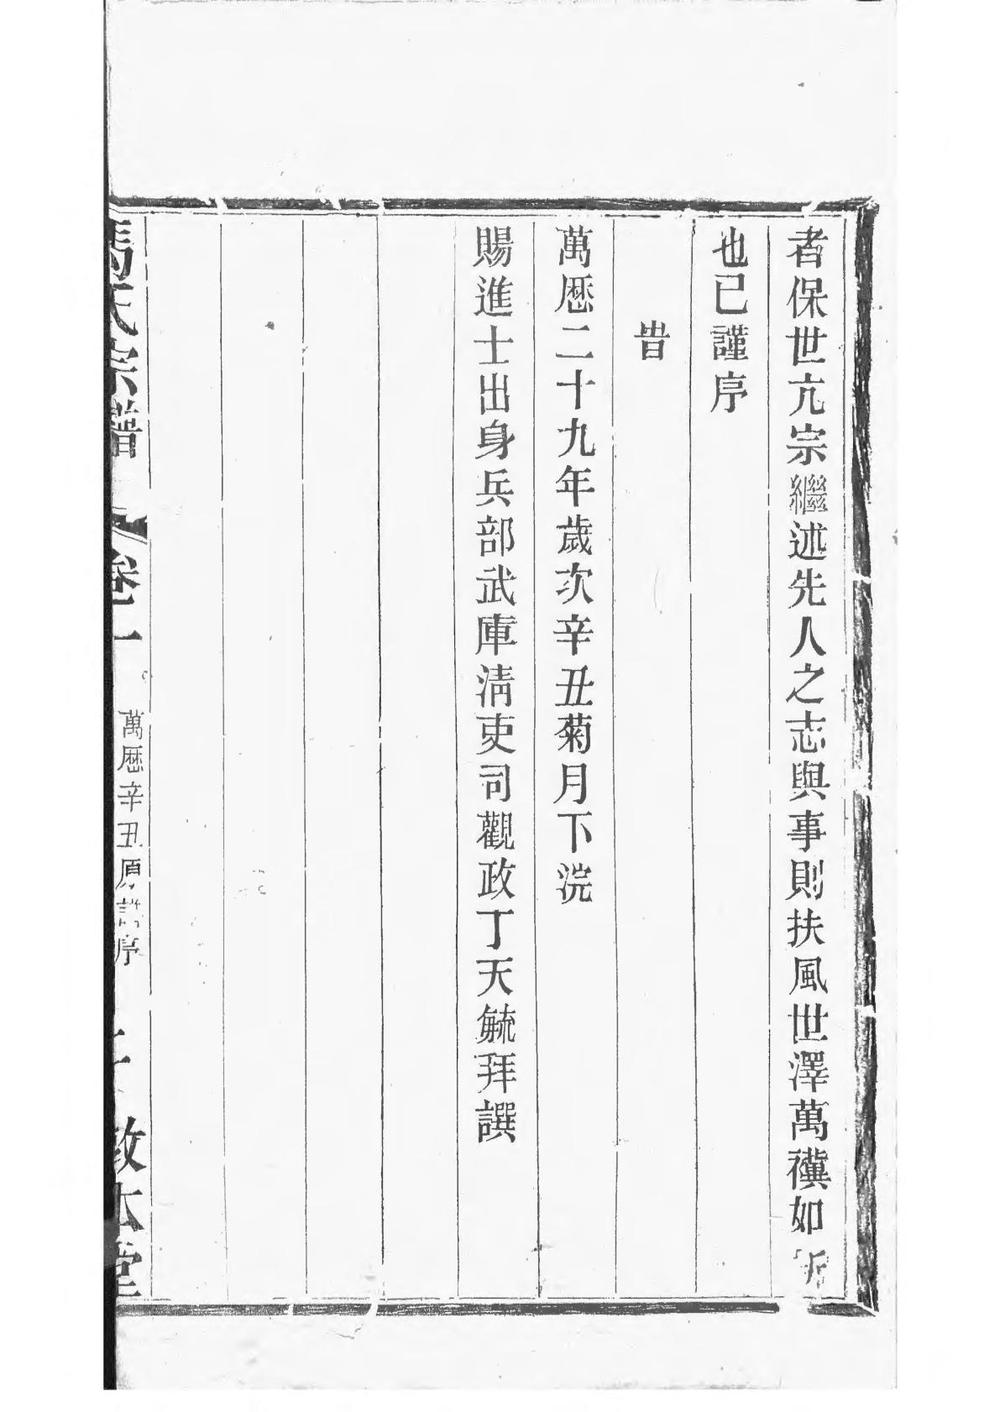 者保世亢宗繼述先人之志與事則扶風世澤萬禩如新
也已謹序
旹
萬厯二十九年歲次辛丑菊月下浣
賜進士出身兵部武庫清吏司觀政丁天毓拜譔
馬氏宗譜 卷一 萬厯辛丑原譜序 二 敦本堂